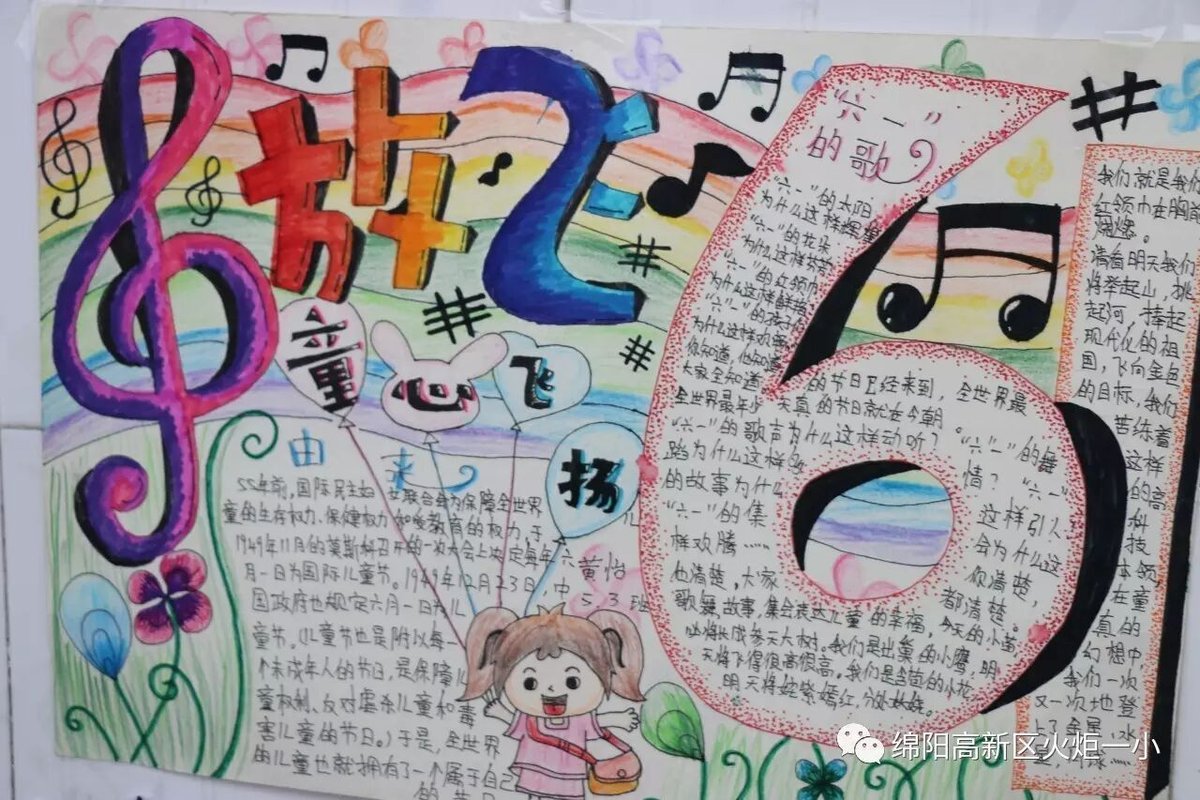 放飞
童心飞扬
由来
55年前,国际民主妇女联合会为保障全世界儿
童的生存权力、保健权力和受教育的权力,于
1949年11月的莫斯科召开的一次大会上决定每年六
月一日为国际儿童节。1949年12月23日,中
国政府也规定六月一日为儿
童节。(儿童节也是附以每一
个未成年人的节日,是保障儿
童权利、反对虐杀儿童和毒
害儿童的节日。)于是,全世界
的儿童也就拥有了一个属于自己
的节日
黄怡
二3班
61
“六一”
的歌
“六一”的太阳
为什么这样
“六一”的花朵
为什么这样芬芳
“六一”的红领巾
为什么这样鲜艳
“六一”的孩子
为什么这样欢
你知道,他知道
大家全知道 的节日已经来到,全世界最
全世界最年少 天真的节日就在今朝。
“六一”的歌声为什么这样动听?“六一”的舞
蹈为什么这样 情?“六一”
的故事为什么 这样引人
“六一”的集 会为什么这
样欢腾…… 你清楚,
他清楚,大家 都清楚。
歌舞、故事、集会表达儿童的幸福,今天的小苗
必将长成参天大树。我们是出巢的小鹰,明
天将飞得很高很高。我们是含苞的小花
明天将姹紫嫣红,分外妖娆。
我们就是我们
红领巾在胸前
燃烧。
满着明天我们
将举起山,挑
起河,捧起
现代化的祖
国,飞向金色
的目标,我们
苦练着
这样
的高
科
技
本领
在童
真的
幻想中
我们一次
又一次地登
上了金星、水
绵阳高新区火炬一小